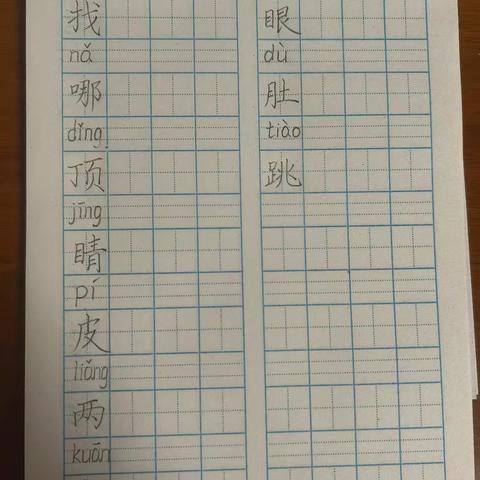 找
nǎ
哪
dǐng
顶
jīng
睛
pí
皮
liǎng
两
kuān
眼
dù
肚
tiào
跳